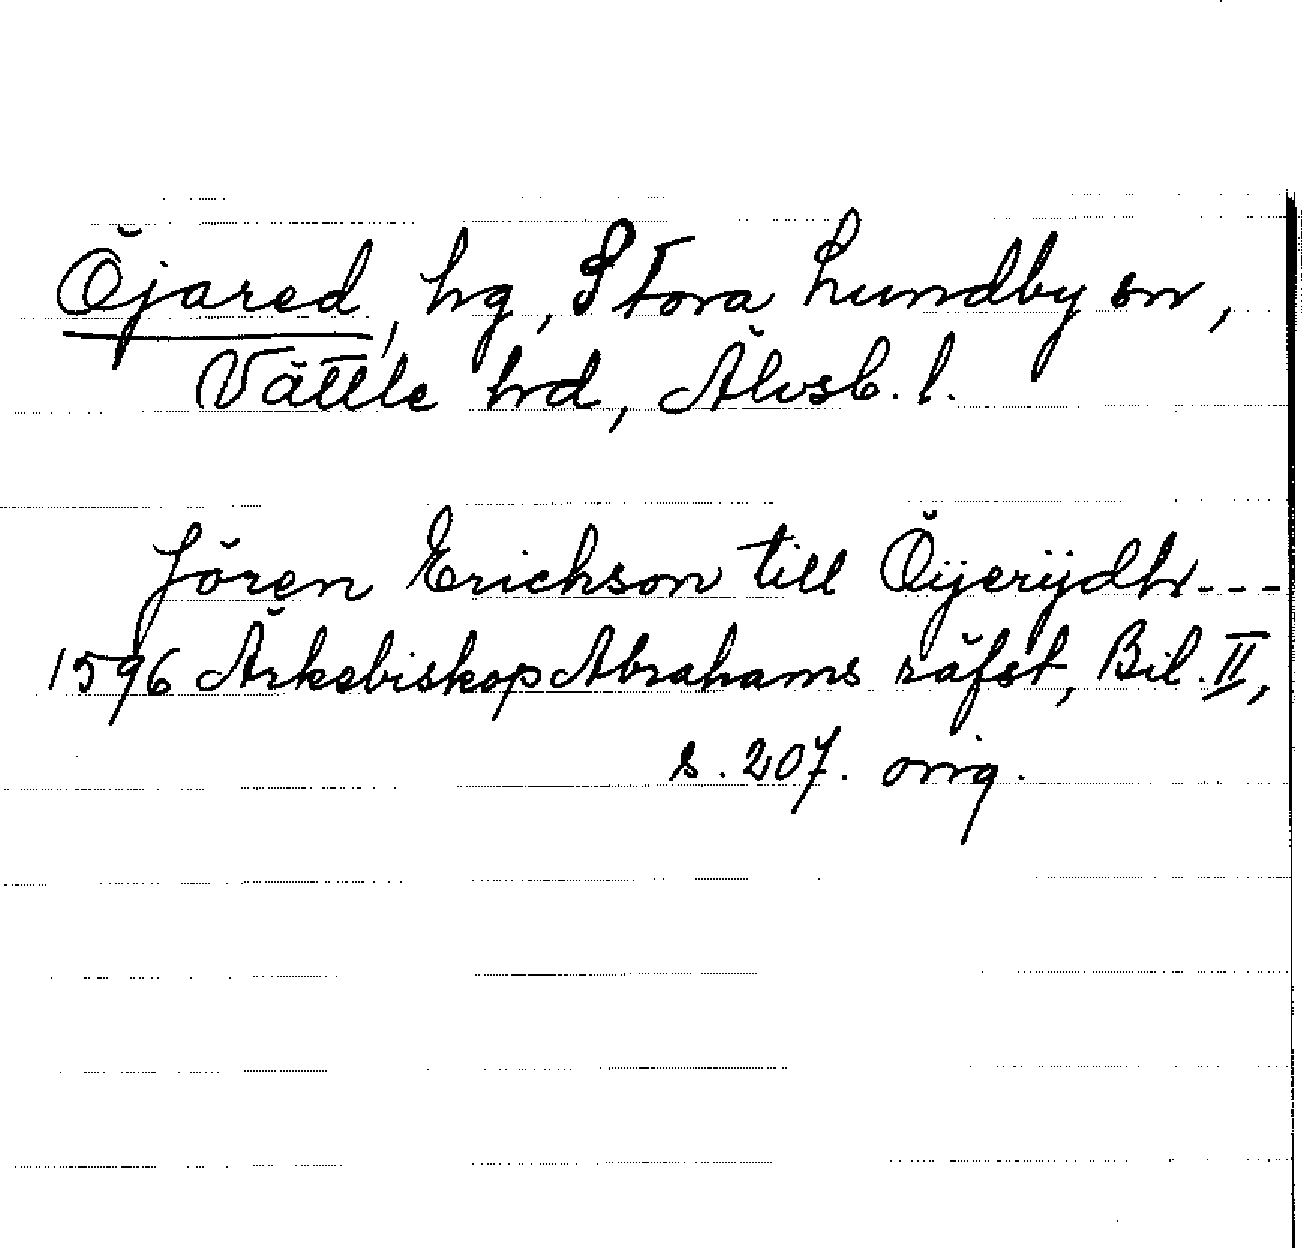 Öjared, hg, Stora Lundby sn,
Vättle hrd, Älvsb. l.
Jören Erichson till Öijerÿdh---
1596 Ärkebiskop Abrahams räfst, Bil. II,
s. 207. orig.